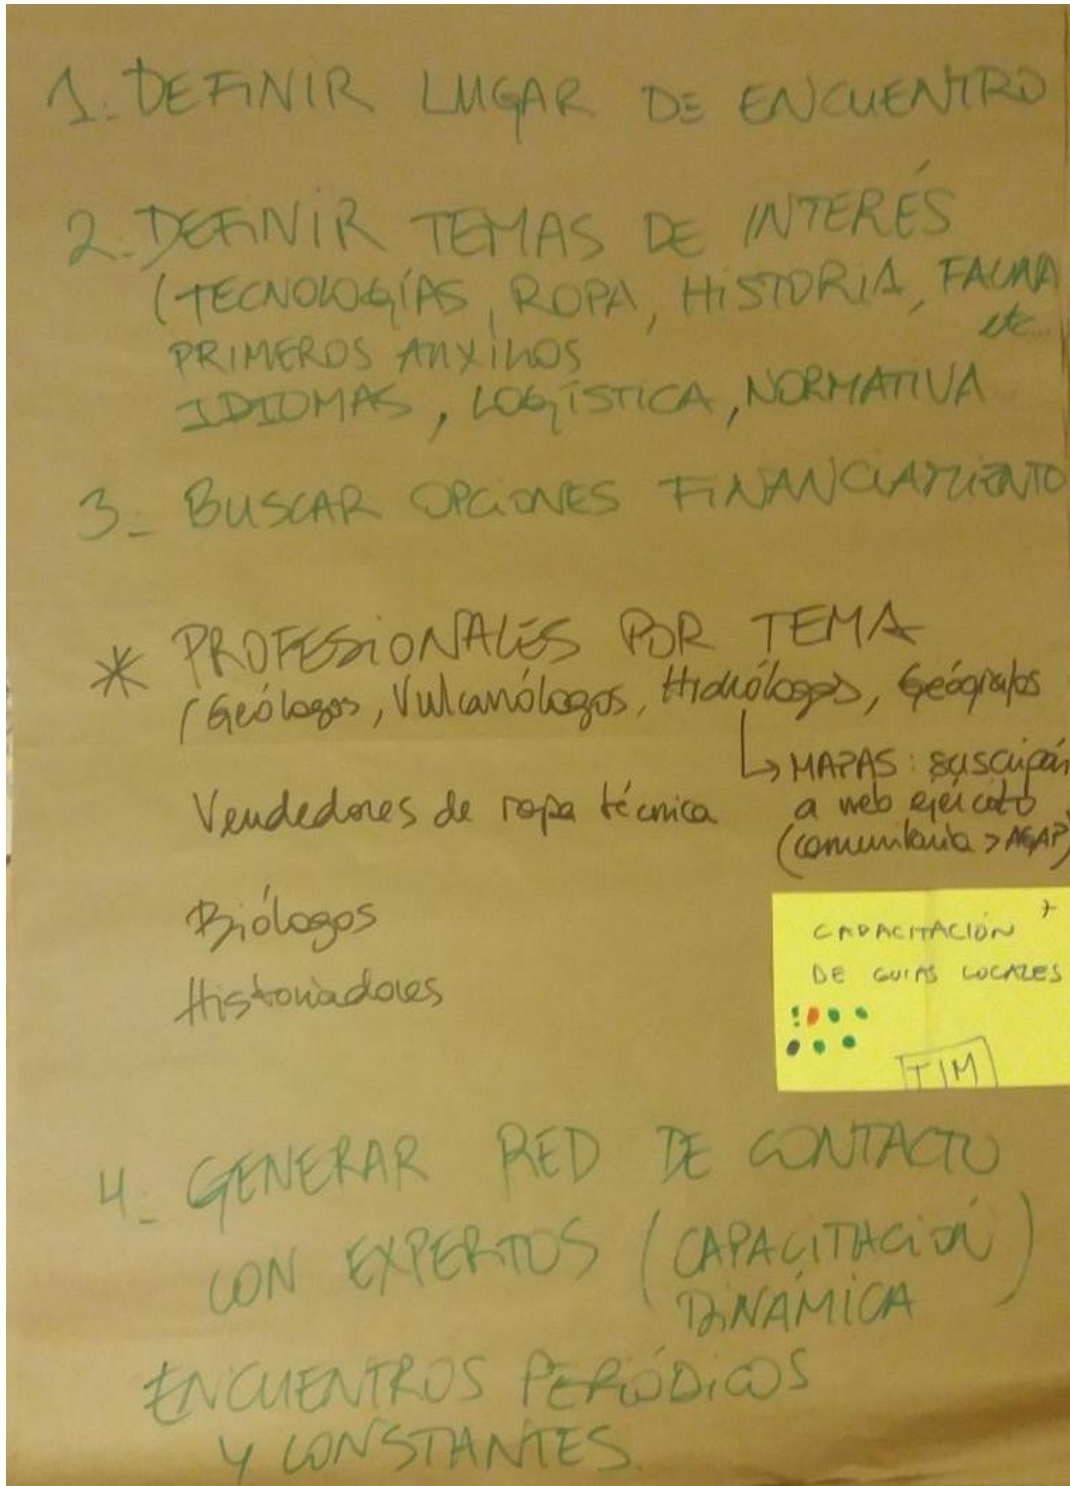 1. DEFINIR LUGAR DE ENCUENTRO
2. DEFINIR TEMAS DE INTERÉS
(TECNOLOGÍAS, ROPA, HISTORIA, FAUNA
etc
PRIMEROS AUXILIOS
IDIOMAS, LOGÍSTICA, NORMATIVA
3- BUSCAR OPCIONES FINANCIAMIENTO
* PROFESIONALES POR TEMA
(Geólogos, Vulcanólogos, Hidrólogos, Geógrafos
↳ MAPAS: suscripón
Vendedores de ropa técnica
a web ejército
(comunitaria > AGAP)
Biólogos
Historiadores
CAPACITACIÓN
DE GUIAS LOCALES
TIM
4- GENERAR RED DE CONTACTO
CON EXPERTOS (CAPACITACIÓN
DINÁMICA)
ENCUENTROS PERIÓDICOS
Y CONSTANTES.